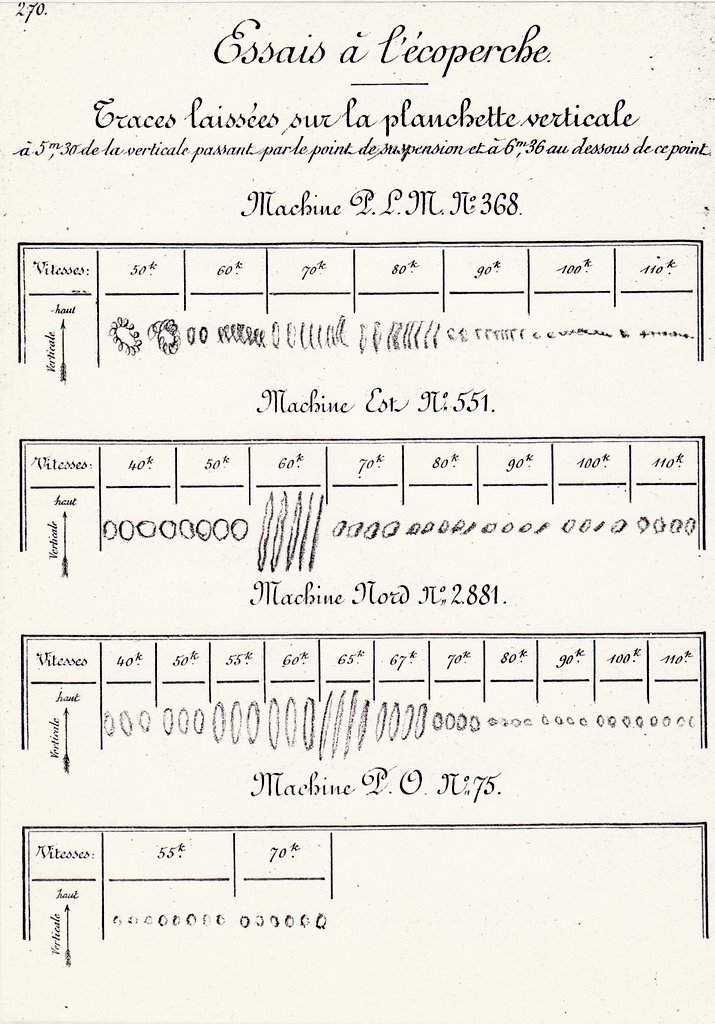 270.
Essais à l'écoperche.
Traces laissées sur la planchette verticale
à 5m,30 de la verticale passant par le point de suspension et à 6m,36 au dessous de ce point.
Machine P. L. M. No. 368.
Vitesses: 50k 60k 70k 80k 90k 100k 110k
haut
Verticale
Machine Est No. 551.
Vitesses: 40k 50k 60k 70k 80k 90k 100k 110k
haut
Verticale
Machine Nord No. 2.881.
Vitesses 40k 50k 55k 60k 65k 67k 70k 80k 90k 100k 110k
haut
Verticale
Machine P. O. No. 75.
Vitesses: 55k 70k
haut
Verticale